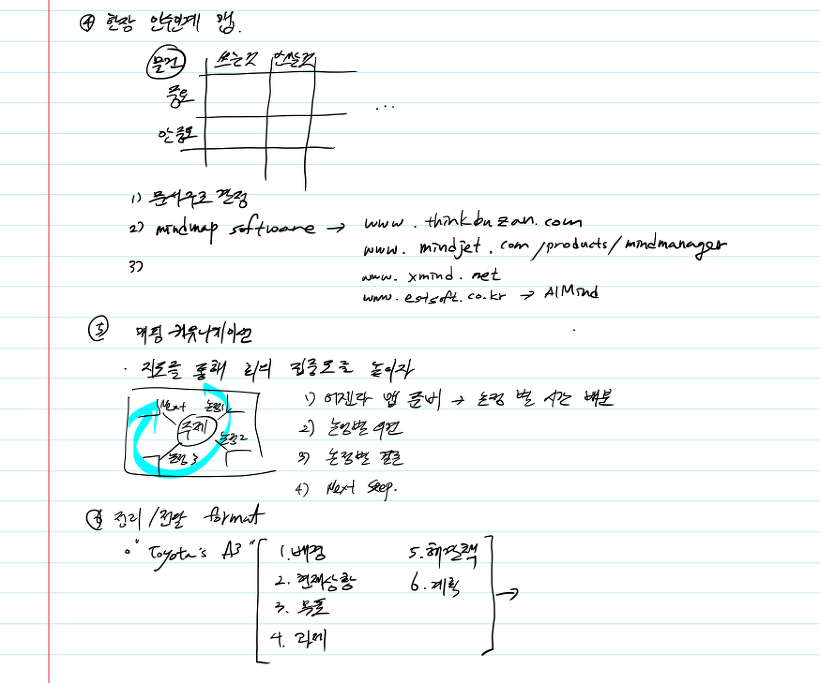 ④ 한장 인수인계 맵.
물건 쓰는것 안쓰는것
중요
안중요
...
1) 문서구조 결정
2) mindmap software → www.thinkbuzan.com
www.mindjet.com/products/mindmanager
3)
www.xmind.net
www.estsoft.co.kr → AlMind
⑤ 매핑 커뮤니케이션
· 지도를 통해 회의 집중도를 높이자
Next 논점1
주제
논점2
논점3
1) 어젠다 맵 준비 → 논점 별 시간 배분
2) 논점별 의견
3) 논점별 결론
4) Next Step.
정리/전달 format
" Toyota's A3 "
1. 배경
2. 현재상황
3. 목표
4. 과제
5. 해결책
6. 계획
→